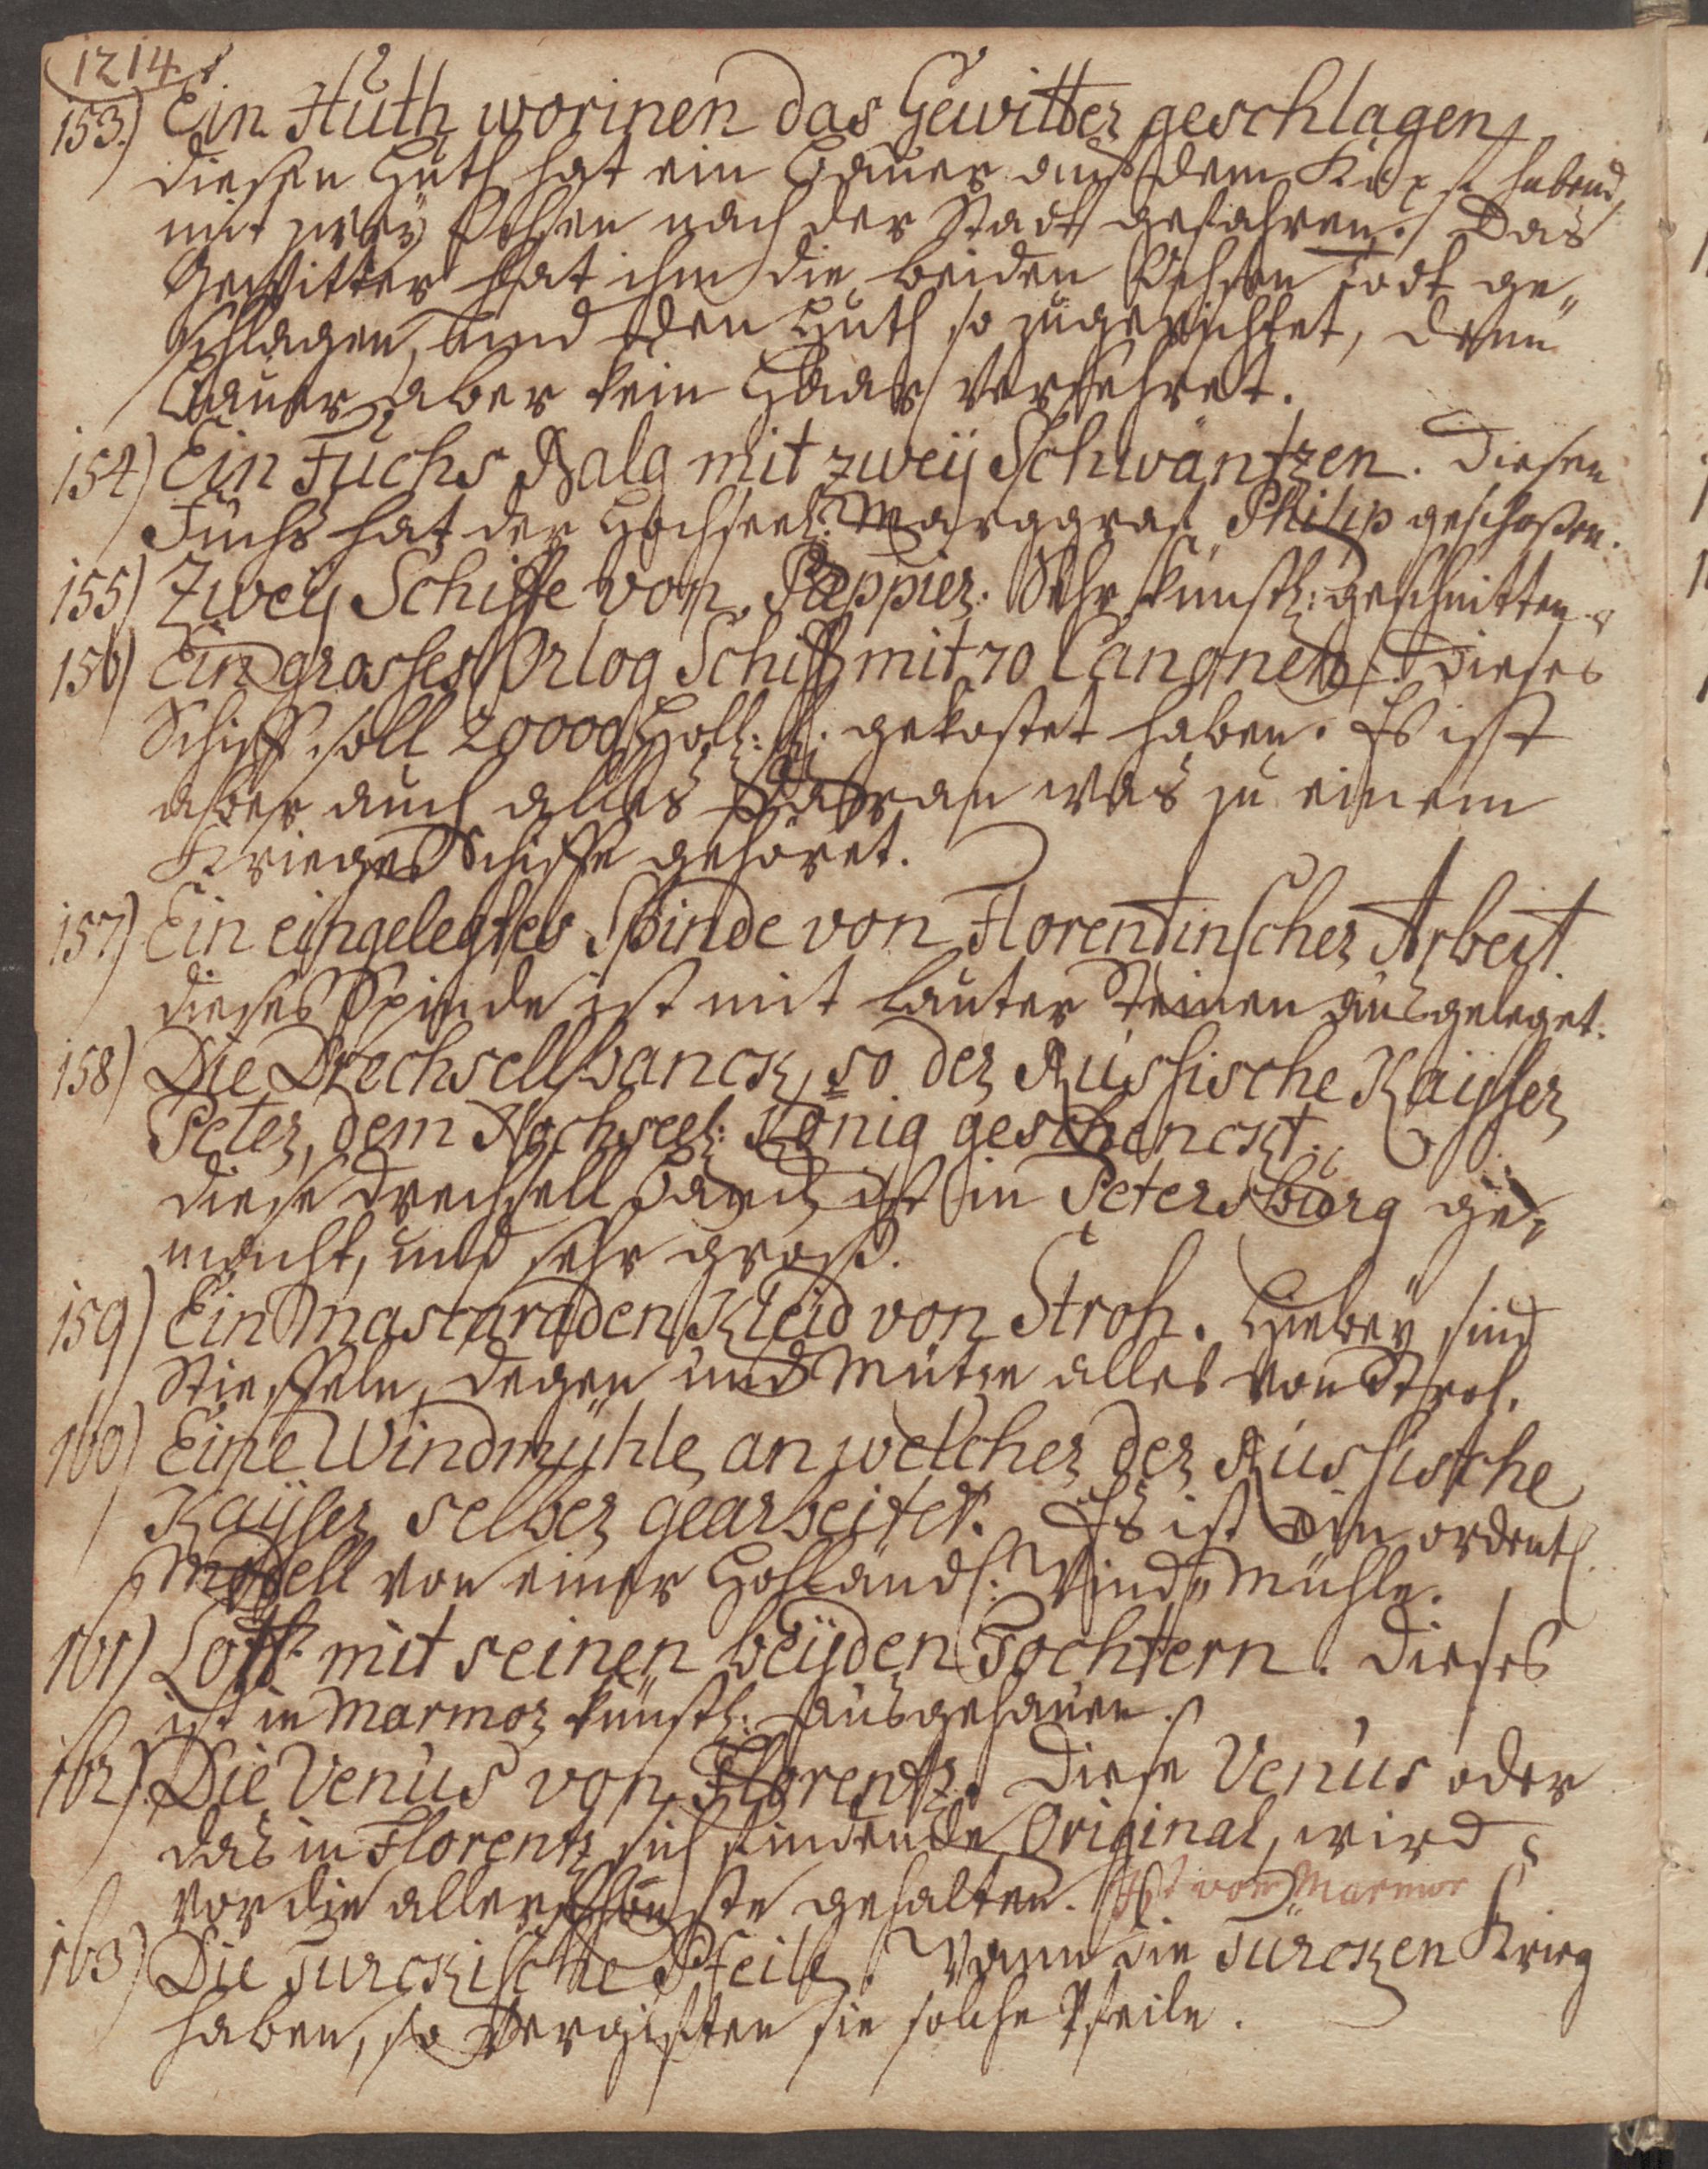 1214.
153.) Ein Huth worinen das Gewitter geschlagen,
diesen Huth hat ein Bauer auf dem Kopf habend,
mit zweÿ Ochsen nach der Stadt gefahren. Das
Gewitter hat ihm die beiden Ochsen todt ge„
schlagen, und den Huth so zugerichtet, dem
Bauer aber kein Haar versehret.
154) Ein Fuchs Balg mit zweÿ Schwäntzen. Diesen
Fuchs hat der Hochseel: Marggraf Philip geschoßen.
155) Zweÿ Schiffe von Pappier. Sehr künstl: geschnitten.
156) Ein grosses Orlog Schiff mit 70 Canonen. Dieses
Schiff soll 20000 Holl: fl. gekostet haben. Es ist
aber auch alles daran was zu einem
Krieges Schiffe gehöret.
157) Ein eingelegtes Spinde von Florentinscher Arbeit.
dieses Spinde ist mit lauter Steinen ausgeleget.
158) Die Drechsell-banck, so der Russische Kaÿser
Peter, dem Hochseel: König geschenckt.
diese Drechsell Banck ist in Petersburg ge„
macht, und sehr groß.
159) Ein Mascaraden Kleid von Stroh. Hiebeÿ sind
Stieffeln, Degen und Mütze alles von Stroh.
160) Eine Windmühle, an welcher der Russische
Kaÿser selber gearbeitet. Es ist ein ordentl.
Modell von einer Holländ: Wind„Mühle.
161) Loth mit seinen beÿden Töchtern. Dieses
ist in Marmor künstl: ausgehauen.
162) Die Venus von Florentz. Diese Venus oder
das in Florentz sich findende Original, wird
vor die allerschönste gehalten. Ist von Marmor
163) Die Türckische Pfeile. Wann die Türcken Krieg
haben, so vergifften sie solche Pfeile.